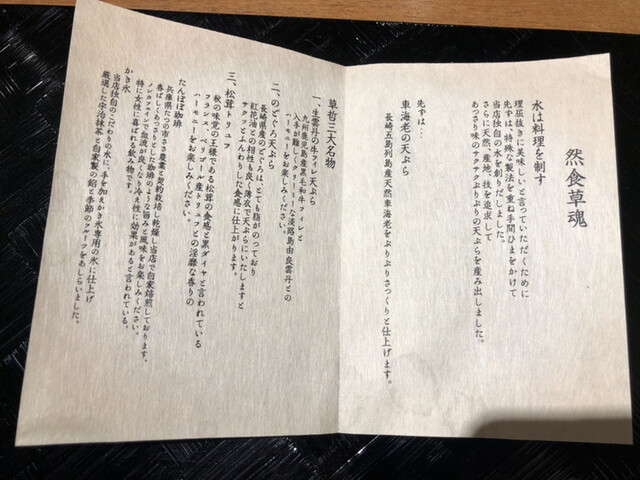 然食草魂
水は料理を制す
理屈抜きに美味しいと言っていただくために
先ずは、特殊な製法を重ね手間ひまをかけて
当店独自の水を創りだしました。
さらに天然、産地、技を追求して
あっさり味のサクサクぷりぷりの天ぷらを産み出しました。
先ずは…
車海老の天ぷら
長崎五島列島産天然車海老をぷりぷりさっくりと仕上げます。
草哲三大名物
一、生雲丹の牛フィレ天ぷら
九州鹿児島産黒毛和牛フィレと
入手が難しいクリーミーな淡路島由良雲丹との
ハーモニーをお楽しみください。
二、のどぐろ天ぷら
長崎県産のどぐろは、とても脂がのっており
紅花油との相性も良く薄衣で天ぷらにいたしますと
サクッとふんわりした食感に仕上がります。
三、松茸トリュフ
秋の味覚の王様である松茸の食感と黒ダイヤと言われている
フランス、ペリゴール産トリュフとの淫靡な香りの
ハーモニーをお楽しみください。
たんぽぽ珈琲
兵庫県たつの市ささ農業と契約栽培し乾燥し当店で自家焙煎しております。
香ばしくあっさりとした珈琲のような旨みと風味をお楽しみください。
ノンカフェインで血流が良くなり冷え性に効果があると言われている。
特に女性に喜ばれる飲み物です。
かき氷
当店独自のこだわりの水に、手を加えかき氷専用の氷に仕上げ
厳選した宇治抹茶と自家製の餡と季節のフルーツをあしらいました。